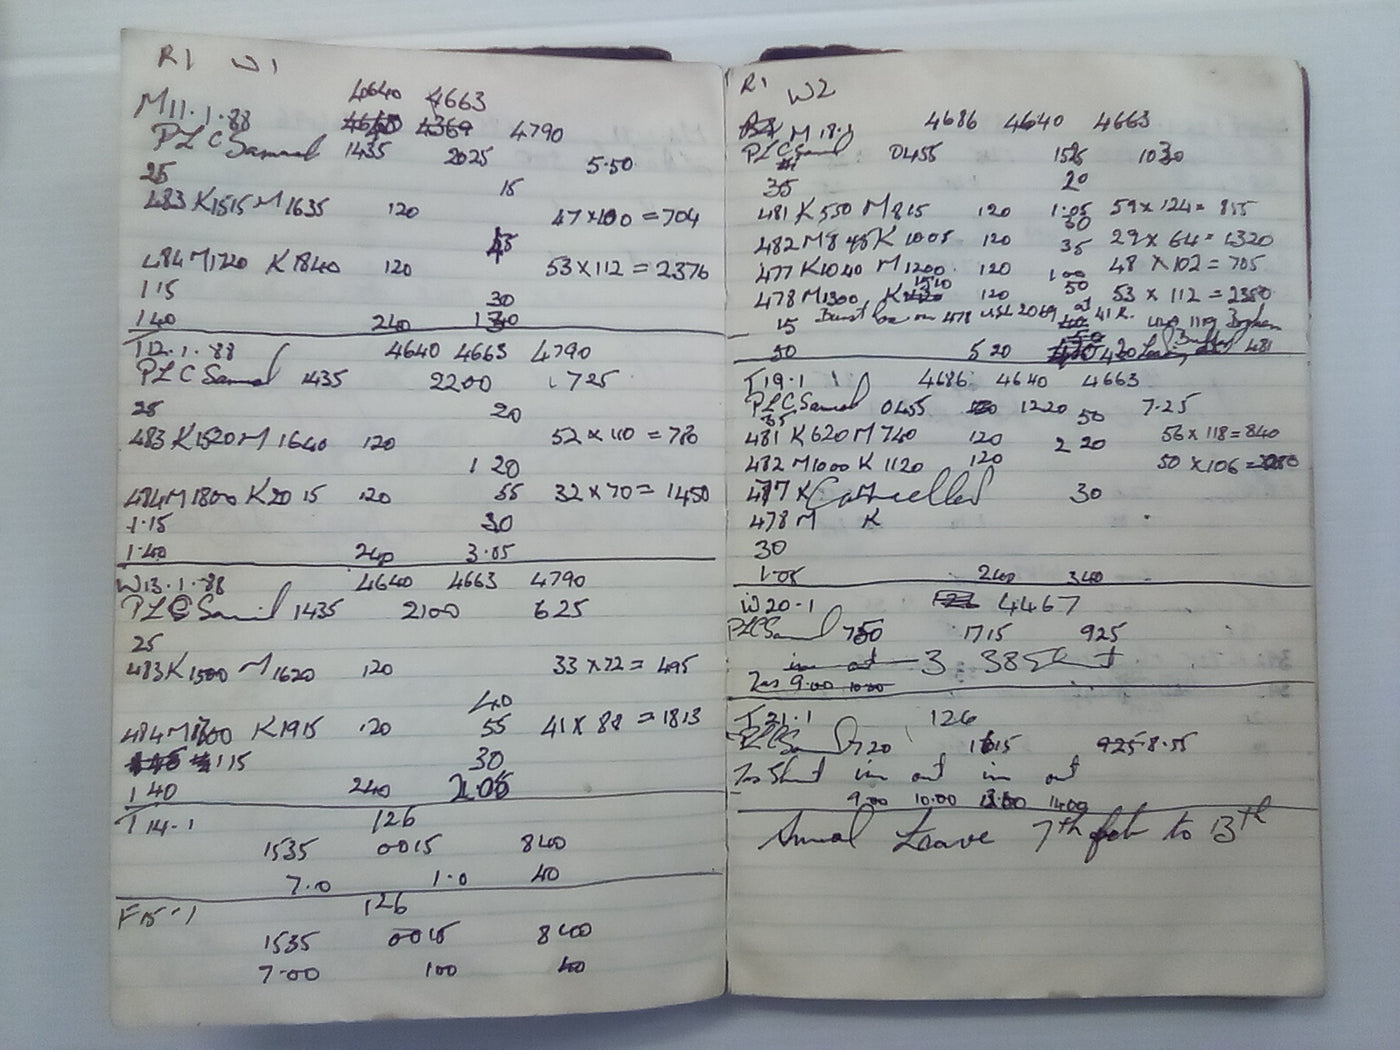 R1 W1
4640 4663
M 11.1.88 4790
PLC Samuel 1435 2025 5.50
25 15
483 K1515 M1635 120 47 x 100 = 704
45
484 M1720 K1840 120 53 x 112 = 2376
115 30
140 240 130
T12.1.88 4640 4663 4790
PLC Samuel 1435 2200 1725
25 20
483 K1520 M1640 120 52 x 110 = 780
1 20
484 M1800 K2015 120 55 32 x 70 = 1450
1.15 30
1.40 240 3.05
W13.1.88 4640 4663 4790
PLC Samuel 1435 2100 625
25
483 K1500 M1620 120 33 x 72 = 495
40
484 M1800 K1915 120 55 41 x 88 = 1813
115 30
1 40 240 2.05
T 14.1 126
1535 0015 840
7.0 1.0 40
F15.1 126
1535 0015 840
7.00 100 40
R1 W2
M 18.1 4686 4640 4663
PLC Samuel 0455 1525 1030
35 20
481 K550 M815 120 1.05 59 x 124 = 855
30
482 M845 K1005 120 35 29 x 64 = 1320
477 K1040 M1200 120 100 48 x 102 = 705
478 M1300 K1510 120 50 53 x 112 = 2350
15 on 478 2069 at 41 R.
50 5 20 420 481
T19.1 4686 4640 4663
PLC Samuel 0455 1220 50 7.25
35
481 K620 M740 120 2 20 56 x 118 = 840
482 M1000 K1120 120 50 x 106 =
477 K Cancelled 30
478 M K
30
1.05 240 340
W20.1 4467
PLC Samuel 750 1715 925
in out 3 38 Shunt
9.00 10.00
T21.1 126
PLC Samuel 720 1615 925 8.55
Shunt in out in out
9.00 10.00 13.00 1400
Annual Leave 7th feb to 13th